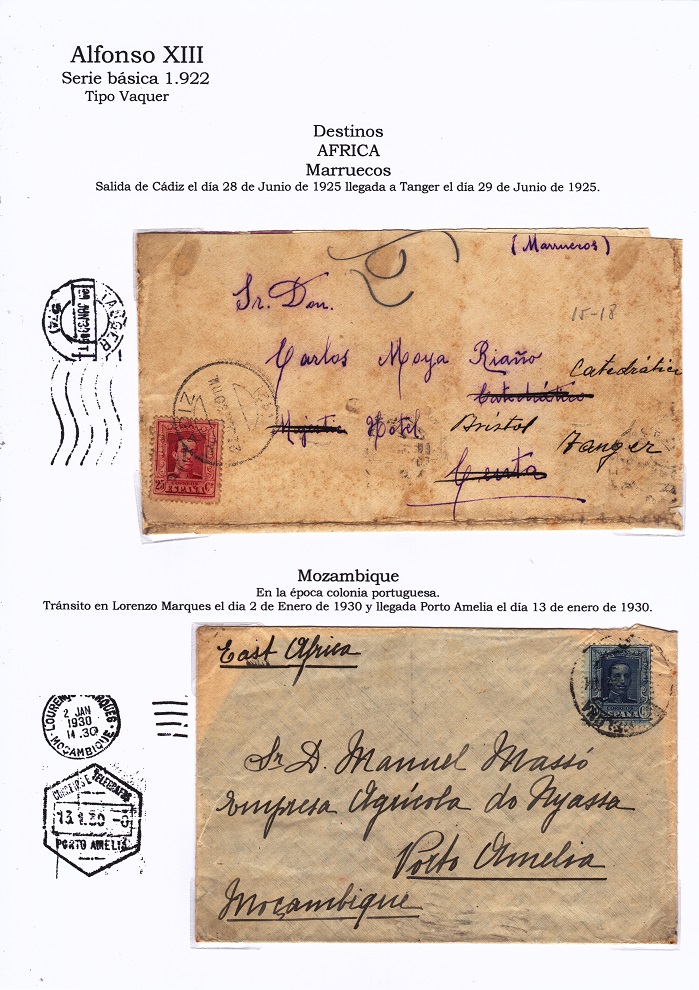 Alfonso XIII
Serie básica 1.922
Tipo Vaquer
Destinos
AFRICA
Marruecos
Salida de Cádiz el día 28 de Junio de 1925 llegada a Tanger el día 29 de Junio de 1925.
(Marruecos)
TANGER
Sr. Don.
15-18
Carlos Moya Riaño
Catedrático
Catedrático
Majestic Hotel Bristol
Tanger
Ceuta
25 CORREOS Cs
ESPAÑA
Mozambique
En la época colonia portuguesa.
Tránsito en Lorenzo Marques el dia 2 de Enero de 1930 y llegada Porto Amelia el día 13 de enero de 1930.
East Africa
LOURENÇO MARQUES
2 JAN
1930
14.30
MOÇAMBIQUE
CORREIOS E TELEGRAFOS
13.1.30 -6
PORTO AMELIA
Sr D. Manuel Massó
Empresa Agrícola do Nyassa
Porto Amelia
Moçambique